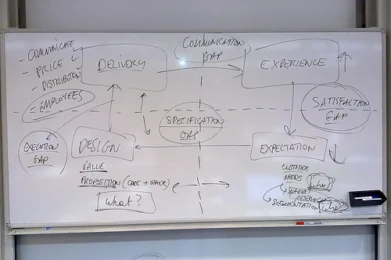 - COMMUNICATE
- PRICE
- DISTRIBUTION
- EMPLOYEES
DELIVERY
COMMUNICATION
GAP
EXPERIENCE
SATISFACTION
GAP
SPECIFICATION
GAP
EXECUTION
GAP
DESIGN
EXPECTATION
VALUE
PROPOSITION
What?
CUSTOMER
NEEDS
SEGMENTATION